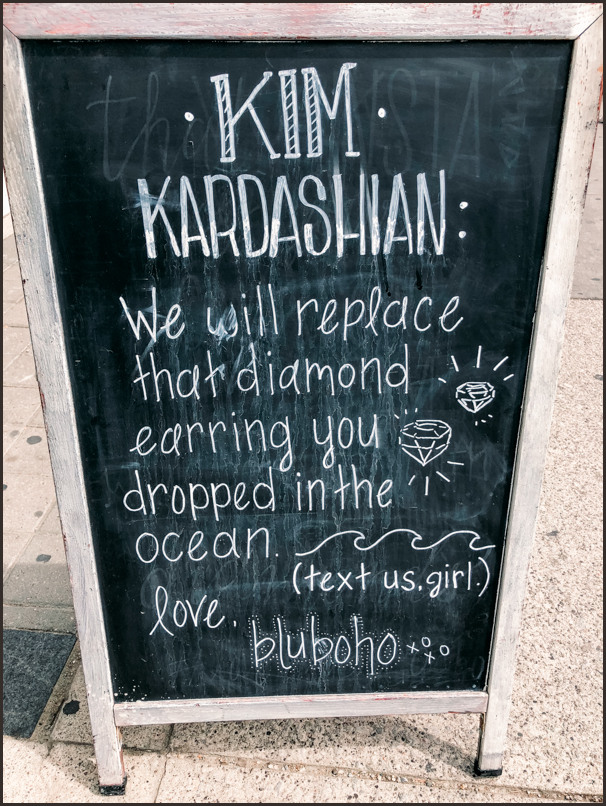 · KIM ·
KARDASHIAN:
We will replace
that diamond
earring you
dropped in the
ocean.
(text us, girl.)
love,
bluboho xoxo